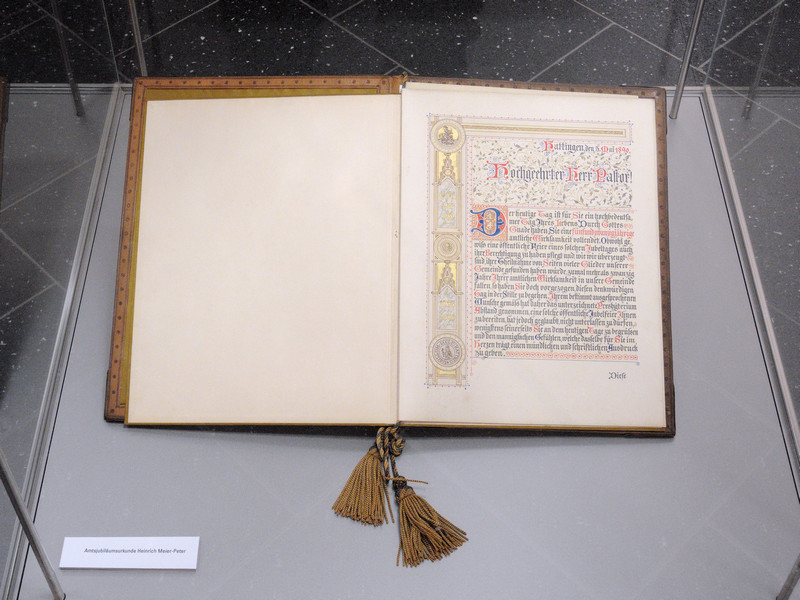 Hattingen, den 5. Mai 1879.
Hochgeehrter Herr Pastor!
Der heutige Tag ist für Sie ein hochbedeutsa,
mer Tag Ihres Lebens. Durch Gottes
Gnade haben Sie eine fünfundzwanzigjährige
amtliche Wirksamkeit vollendet. Obwohl ge,
wiß eine öffentliche Feier eines solchen Jubeltages auch
ihre Berechtigung zu haben pflegt und wir wir überzeugt
sind ihre Theilnahme von Seiten vieler Glieder unserer
Gemeinde gefunden haben würde, zumal mehr als zwanzig
Jahre Ihrer amtlichen Wirksamkeit in unsere Gemeinde
fallen, so haben Sie doch vorgezogen diesen denkwürdigen
Tag in der Stille zu begehen. Ihrem bestimmt ausgesprochenen
Wunsche gemäß hat daher das unterzeichnete Presbyterium
Abstand genommen, eine solche öffentliche Jubelfeier Ihnen
zu bereiten, hat jedoch geglaubt, nicht unterlassen zu dürfen,
wenigstens seinerseits Sie an dem heutigen Tage zu begrüßen
und den mannigfachen Gefühlen, welche dasselbe für Sie im
Herzen trägt einen mündlichen und schriftlichen Ausdruck
zu geben.
Diese
Amtsjubiläumsurkunde Heinrich Meier-Peter